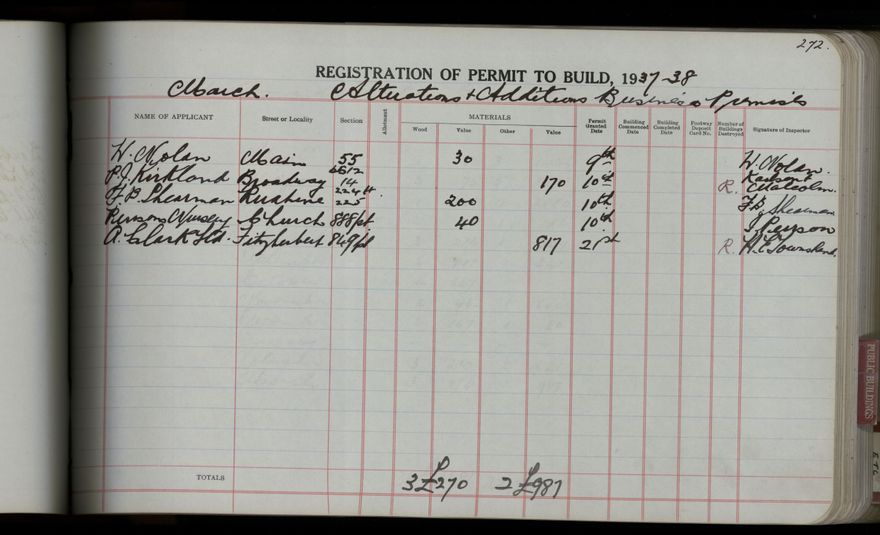 272.
REGISTRATION OF PERMIT TO BUILD, 1937-38
March. Alterations & Additions Business Premises
NAME OF APPLICANT Street or Locality Section Allotment MATERIALS Wood Value Other Value Permit Granted Date Building Commenced Date Building Completed Date Footway Deposit Card No. Number of Buildings Destroyed Signature of Inspector
W. Nolan Main 55 30 9th W. Nolan.
P.J. Kirkland Broadway 14 170 10th R. Malcolm.
F.P. Shearman Ruahine 224 pt 225 200 10th F.P. Shearman
Nursery Church 888 pt 40 10th
A. Clark Ltd. Fitzherbert 849 pt 817 21st R. H.E. Townshend.
TOTALS 3 £270 2 £987
PUBLIC BUILDINGS